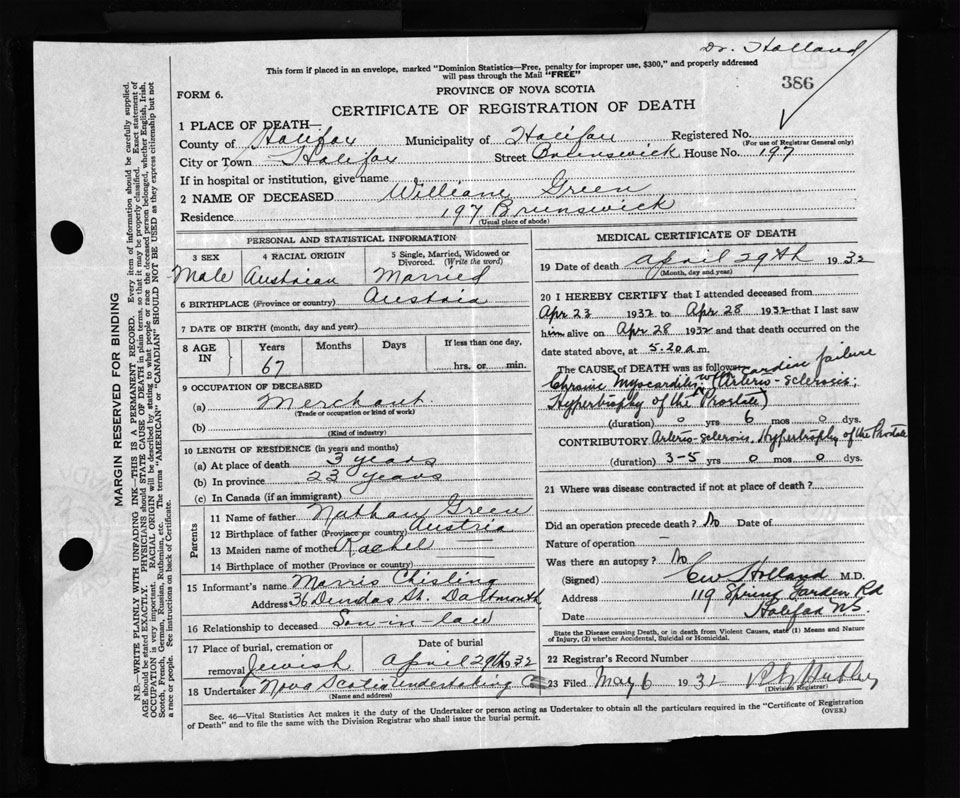 Dr. Holland
This form if placed in an envelope, marked "Dominion Statistics—Free, penalty for improper use, $300," and properly addressed
will pass through the Mail "FREE"
386
FORM 6.
PROVINCE OF NOVA SCOTIA
CERTIFICATE OF REGISTRATION OF DEATH
1 PLACE OF DEATH—
County of Halifax Municipality of Halifax Registered No.
(For use of Registrar General only)
City or Town Halifax Street Brunswick House No. 197
If in hospital or institution, give name
2 NAME OF DECEASED William Green
Residence 197 Brunswick
(Usual place of abode)
PERSONAL AND STATISTICAL INFORMATION
3 SEX 4 RACIAL ORIGIN 5 Single, Married, Widowed or Divorced. (Write the word)
Male Austrian Married
6 BIRTHPLACE (Province or country) Austria
7 DATE OF BIRTH (month, day and year)
8 AGE IN Years Months Days If less than one day,
67 hrs. or min.
9 OCCUPATION OF DECEASED
(a) Merchant
(Trade or occupation or kind of work)
(b)
(Kind of industry)
10 LENGTH OF RESIDENCE (in years and months)
(a) At place of death 3 years
(b) In province 23 years
(c) In Canada (if an immigrant)
Parents
11 Name of father Nathan Green
12 Birthplace of father (Province or country) Austria
13 Maiden name of mother Rachel
14 Birthplace of mother (Province or country)
15 Informant's name Morris Chisling
Address 36 Dundas St. Dartmouth
16 Relationship to deceased Son-in-law
17 Place of burial, cremation or removal Date of burial
Jewish April 29th 32
18 Undertaker Nova Scotia Undertaking Co
(Name and address)
MEDICAL CERTIFICATE OF DEATH
19 Date of death April 29th 1932
(Month, day and year)
20 I HEREBY CERTIFY that I attended deceased from
Apr 23 1932 to Apr 28 1932 that I last saw
him alive on Apr 28 1932 and that death occurred on the
date stated above, at 5.20 a.m.
The CAUSE OF DEATH was as follows:
Chronic Myocarditis with cardiac failure (Arterio-sclerosis;
Hypertrophy of the Prostate)
(duration) 0 yrs 6 mos 0 dys.
CONTRIBUTORY Arterio-sclerosis, Hypertrophy of the Prostate
(duration) 3-5 yrs 0 mos 0 dys.
21 Where was disease contracted if not at place of death?
Did an operation precede death? No Date of
Nature of operation —
Was there an autopsy? No
(Signed) CW Holland M.D.
Address 119 Spring Garden Rd
Date Halifax NS.
State the Disease causing Death, or in death from Violent Causes, state (1) Means and Nature
of Injury, (2) whether Accidental, Suicidal or Homicidal.
22 Registrar's Record Number
23 Filed May 6 1932
(Division Registrar)
Sec. 46—Vital Statistics Act makes it the duty of the Undertaker or person acting as Undertaker to obtain all the particulars required in the "Certificate of Registration
of Death" and to file the same with the Division Registrar who shall issue the burial permit.
(OVER)
MARGIN RESERVED FOR BINDING
N.B.—WRITE PLAINLY WITH UNFADING INK—THIS IS A PERMANENT RECORD. Every item of information should be carefully supplied.
AGE should be stated EXACTLY. PHYSICIANS should STATE CAUSE OF DEATH in plain terms, so that it may be properly classified. Exact statement of
OCCUPATION is very important. RACIAL ORIGIN will be described by stating to what people or race the deceased person belonged, whether English, Irish,
Scotch, French, German, Russian, Ruthenian, etc. The terms "AMERICAN" or "CANADIAN" SHOULD NOT BE USED as they express citizenship but not
a race or people. See instructions on back of Certificate.